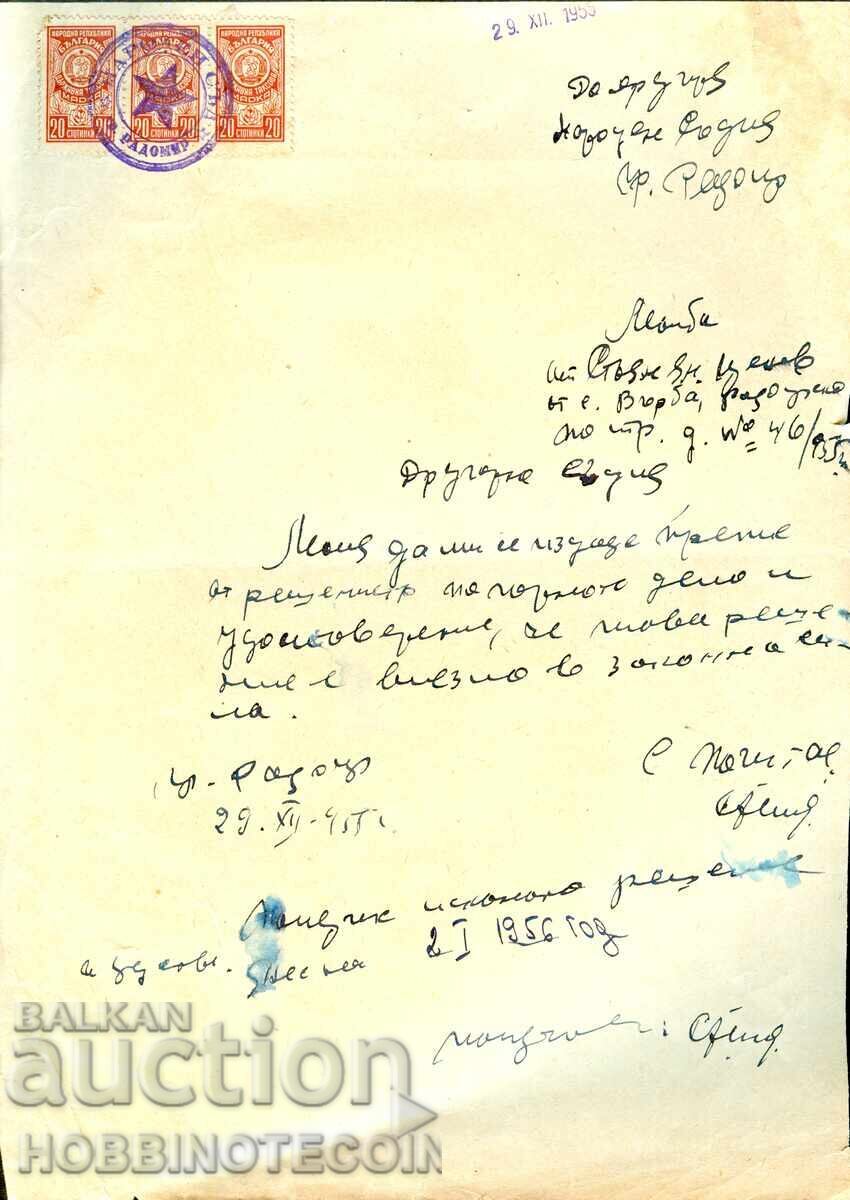 НАРОДНА РЕПУБЛИКА НАРОДНА РЕПУБЛИКА НАРОДНА РЕПУБЛИКА
БЪЛГАРИЯ БЪЛГАРИЯ БЪЛГАРИЯ
ДЪРЖАВНА ТАКСОВА МАРКА
20 20 20 20 20 20
СТОТИНКИ СТОТИНКИ СТОТИНКИ
НАРОДЕН СЪД
РАДОМИР
29. XII. 1955
До другаря
Народен Съдия
гр. Радомир
Молба
от Стоян Ян. Ценов
от с. Върба, радомирско
по гр. д. № 46/955 г.
Другарю съдия
Моля да ми се издаде препис
от решението по горното дело и
удостоверение, че това реше-
ние е влезло в законна си-
ла.
гр. Радомир
29. XII. 955 г.
С почит:
Получих исканото решение
и удостов. днес на 2 I 1956 год
получил:
BALKAN
auction
HOBBINOTECOIN